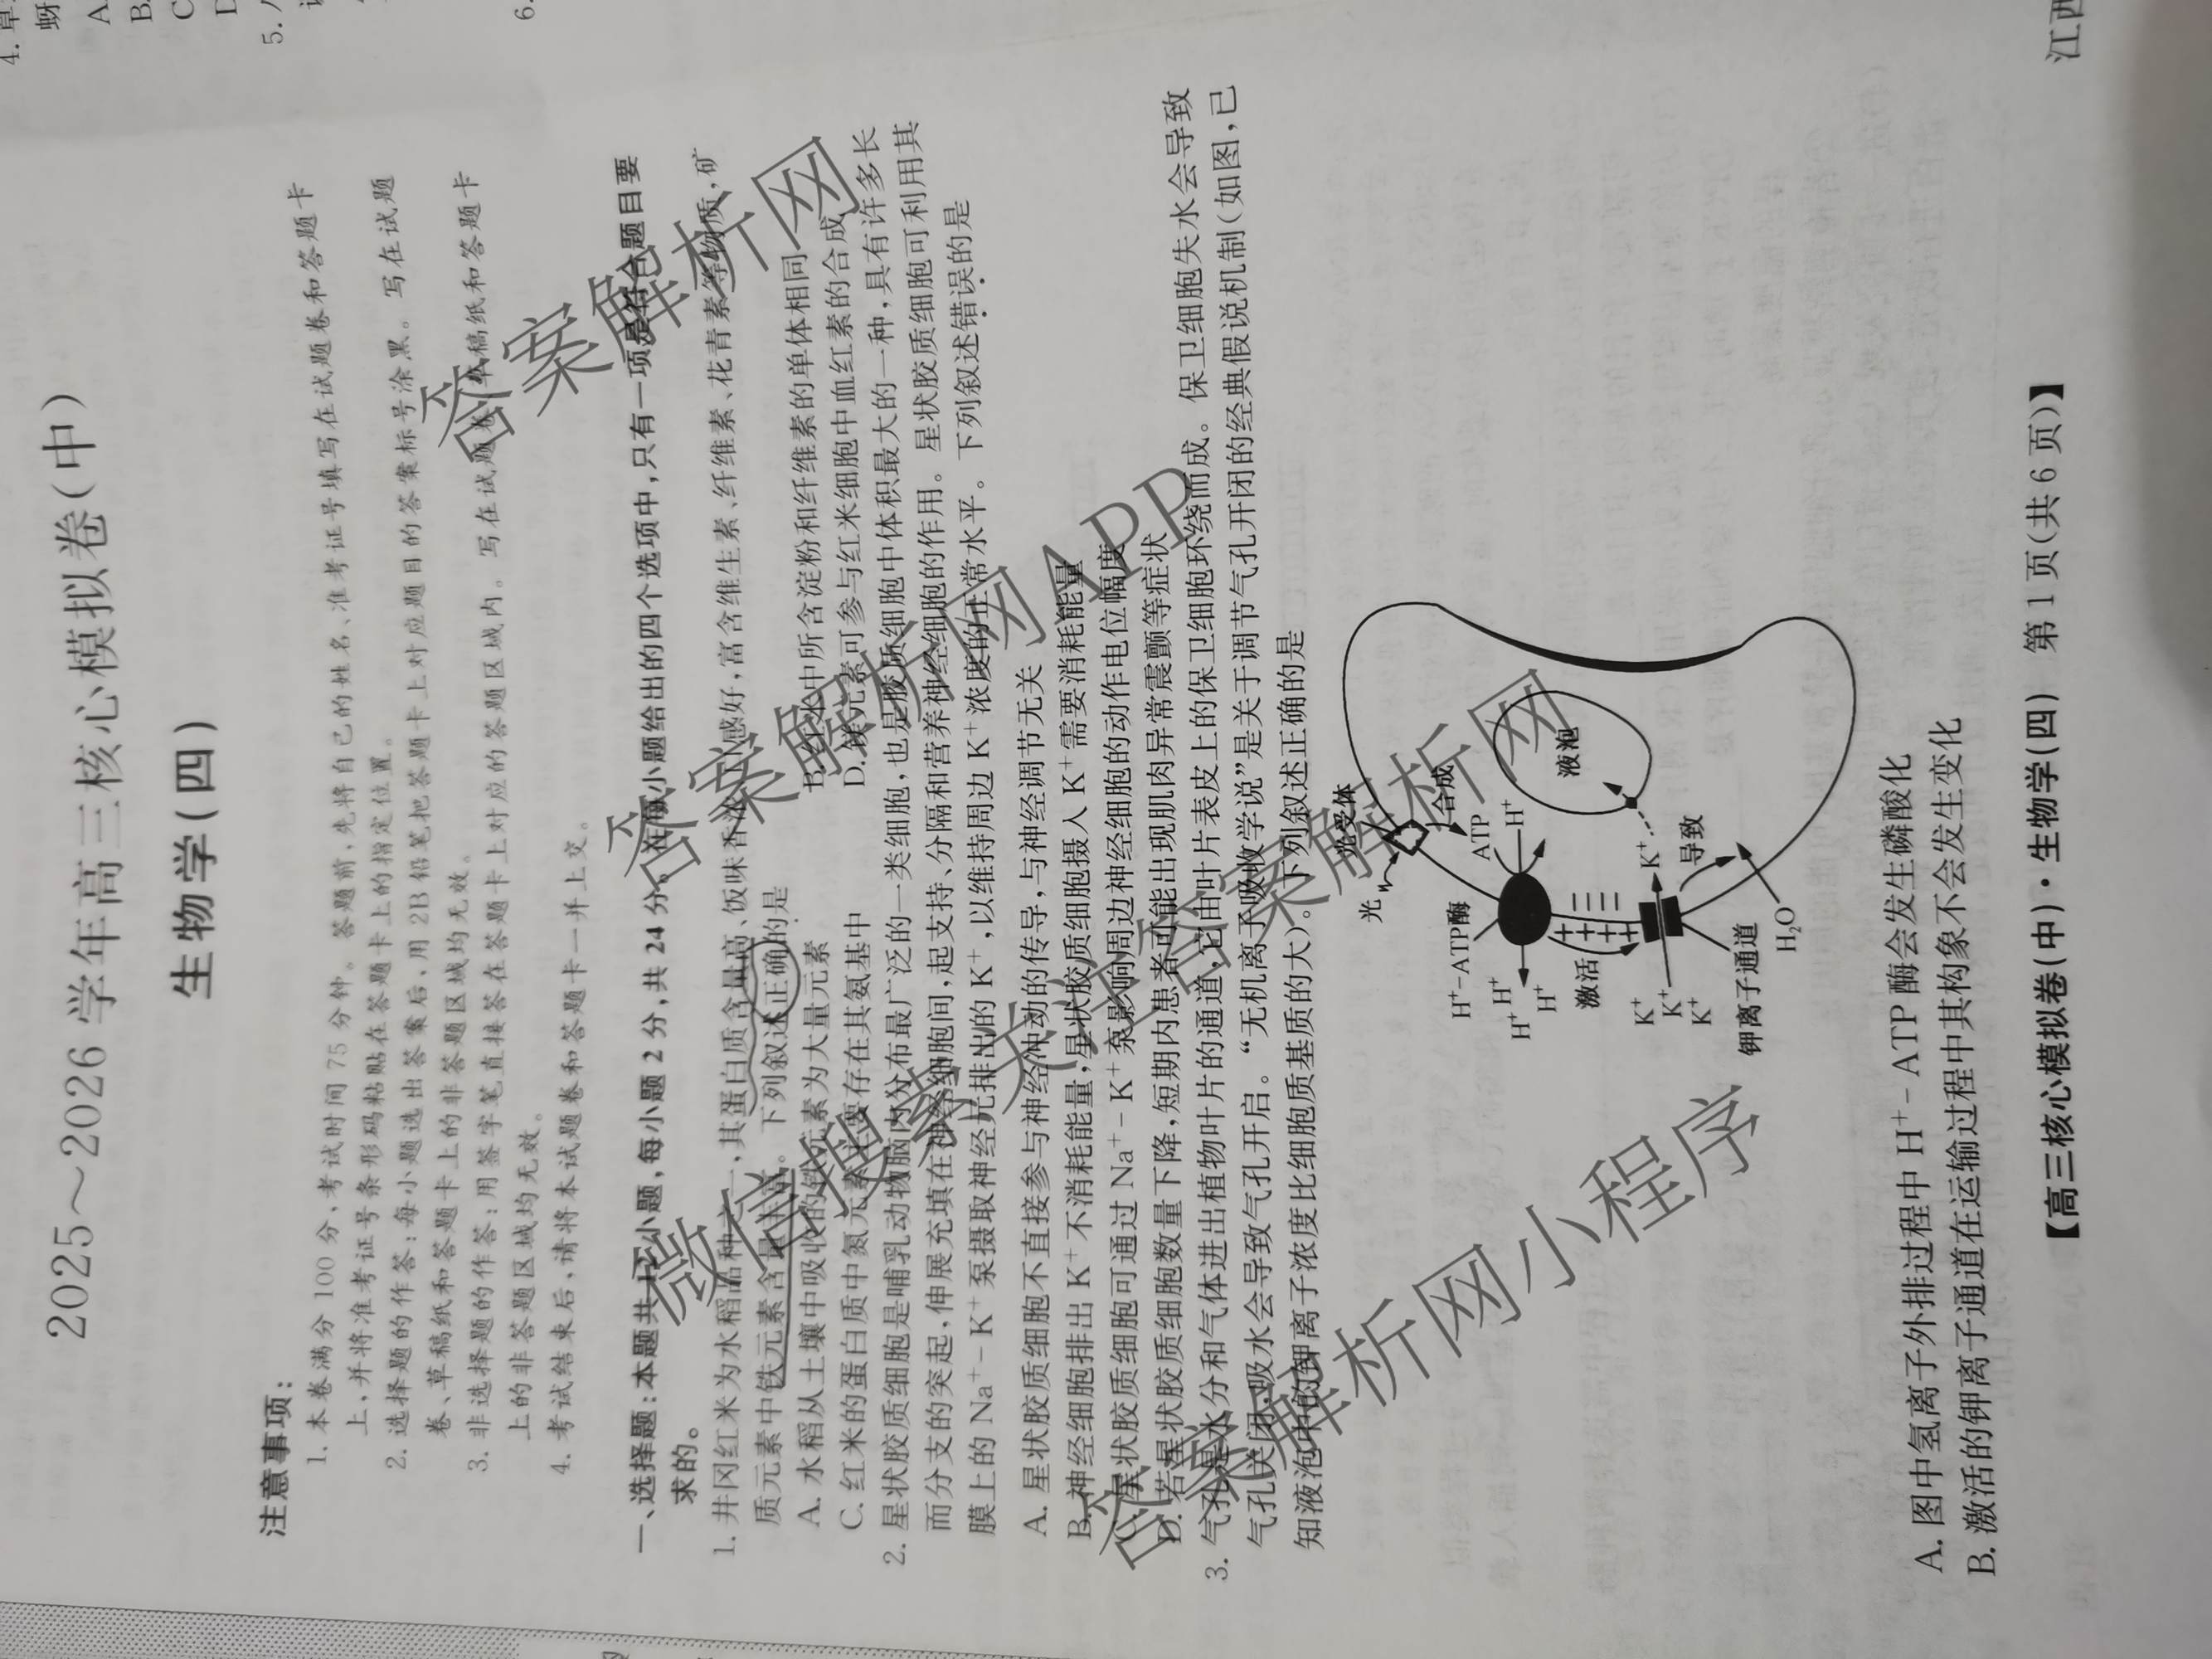 2025～2026学年高三核心模拟卷(中)
生物学(四)
注意事项:
1. 本卷满分100分,考试时间75分钟。答题前,先将自己的姓名、准考证号填写在试题卷和答题卡
上,并将准考证号条形码粘贴在答题卡上的指定位置。
2. 选择题的作答:每小题选出答案后,用2B铅笔把答题卡上对应题目的答案标号涂黑。写在试题
卷、草稿纸和答题卡上的非答题区域均无效。
3. 非选择题的作答:用签字笔直接答在答题卡上对应的答题区域内。写在试题卷、草稿纸和答题卡
上的非答题区域均无效。
4. 考试结束后,请将本试题卷和答题卡一并上交。
一、选择题:本题共12小题,每小题2分,共24分。在每小题给出的四个选项中,只有一项是符合题目要
求的。
1. 井冈红米为水稻品种之一,其蛋白质含量高、饭味香浓、口感好,富含维生素、纤维素、花青素等物质,矿
质元素中铁元素含量丰富。下列叙述正确的是
A. 水稻从土壤中吸收的铁元素为大量元素
B. 红米中所含淀粉和纤维素的单体相同
C. 红米的蛋白质中氮元素主要存在其氨基中
D. 铁元素可参与红米细胞中血红素的合成
2. 星状胶质细胞是哺乳动物脑内分布最广泛的一类细胞,也是胶质细胞中体积最大的一种,具有许多长
而分支的突起,伸展充填在神经细胞间,起支持、分隔和营养神经细胞的作用。星状胶质细胞可利用其
膜上的Na⁺-K⁺泵摄取神经元排出的K⁺,以维持周边K⁺浓度的正常水平。下列叙述错误的是
A. 星状胶质细胞不直接参与神经冲动的传导,与神经调节无关
B. 神经细胞排出K⁺不消耗能量,星状胶质细胞摄入K⁺需要消耗能量
C. 星状胶质细胞可通过Na⁺-K⁺泵影响周边神经细胞的动作电位幅度
D. 若星状胶质细胞数量下降,短期内患者可能出现肌肉异常震颤等症状
3. 气孔是水分和气体进出植物叶片的通道,它由叶片表皮上的保卫细胞环绕而成。保卫细胞失水会导致
气孔关闭,吸水会导致气孔开启。“无机离子吸收学说”是关于调节气孔开闭的经典假说机制(如图,已
知液泡中的钾离子浓度比细胞质基质的大)。下列叙述正确的是
光受体
光
合成
ATP
H⁺-ATP酶
H⁺
H⁺
H⁺
H⁺
液泡
激活
K⁺
K⁺
K⁺
K⁺
导致
钾离子通道
H₂O
A. 图中氢离子外排过程中H⁺-ATP酶会发生磷酸化
B. 激活的钾离子通道在运输过程中其构象不会发生变化
【高三核心模拟卷(中)·生物学(四) 第1页(共6页)】
江西
4.
蚜
A
B.
C
D
5.
6.
答案解析网
答案解析网APP
微信搜索关注答案解析网
答案解析网小程序